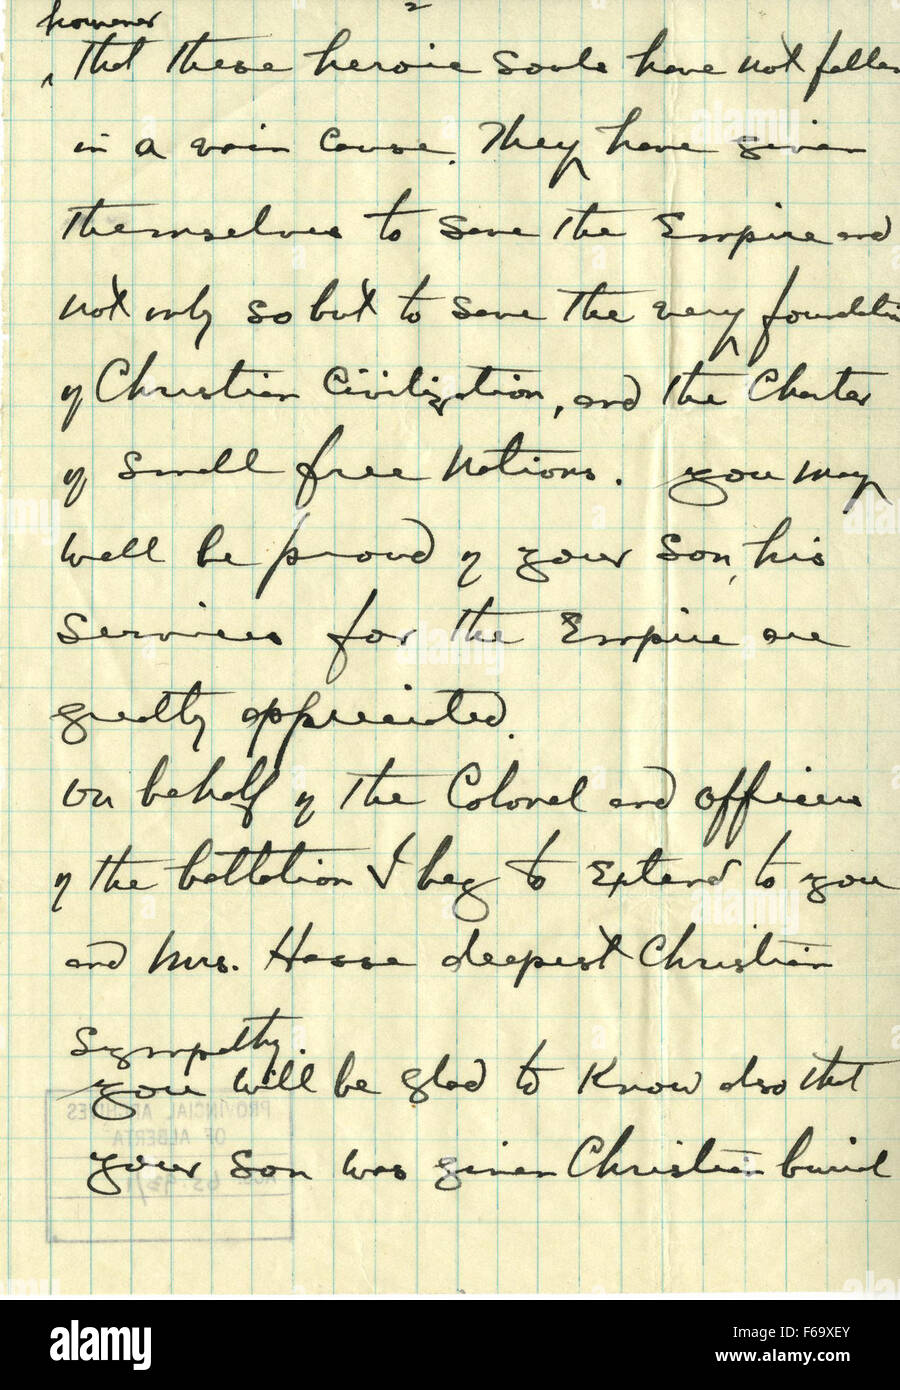 2
however
^ that these heroic souls have not fallen
in a vain cause. They have given
themselves to save the Empire and
not only so but to save the very foundation
of Christian Civilization, and the Charter
of small free Nations. you may
well be proud of your son, his
services for the Empire are
greatly appreciated.
On behalf of the Colonel and officers
of the battalion I beg to Extend to you
and Mrs. Hasse deepest Christian
Sympathy.
you will be glad to Know also that
PROVINCIAL ARCHIVES
OF ALBERTA
your son was given Christian burial
ACC. 65.93/1
alamy
Image ID: F69XEY
www.alamy.com